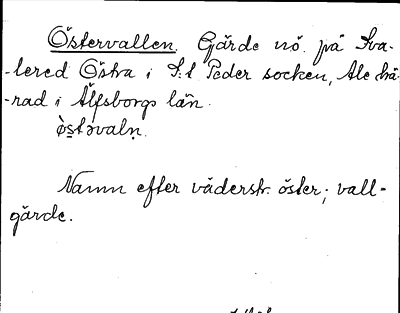 Östervallen. Gärde nö. på Sva-
-lered Östra i S:t Peder socken, Ale hä-
-rad i Älfsborgs län.
òstəvaln.
Namn efter väderstr. öster; vall-
gärde.